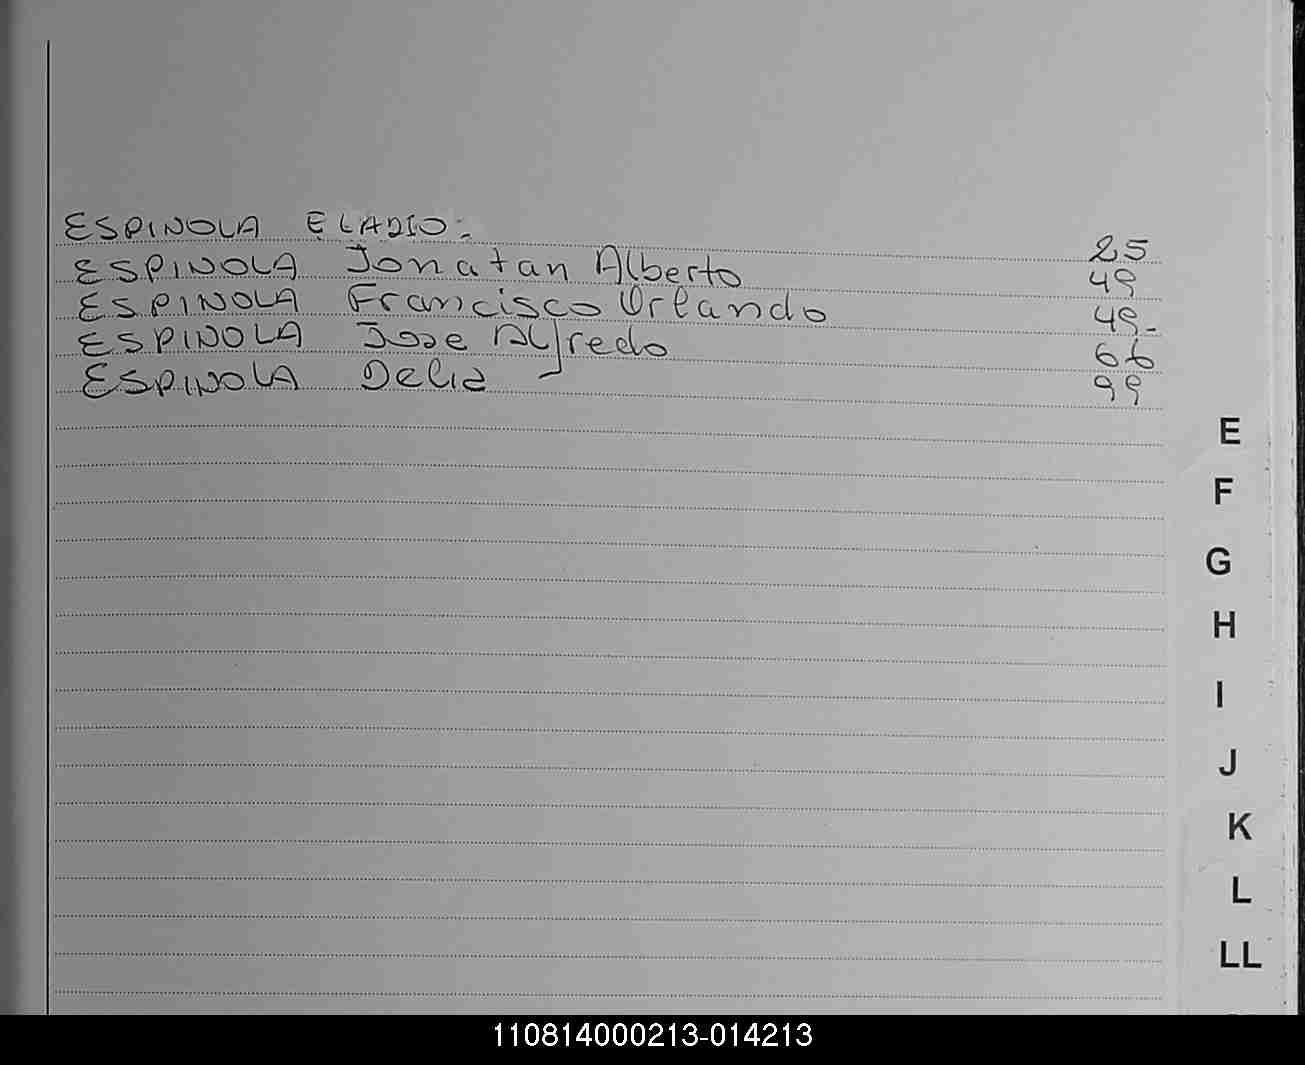 ESPINOLA ELADIO. 25
ESPINOLA Jonatan Alberto 49
ESPINOLA Francisco Orlando 49-
ESPINOLA Jose Alfredo 66
ESPINOLA Delia 99
E
F
G
H
I
J
K
L
LL
110814000213-014213